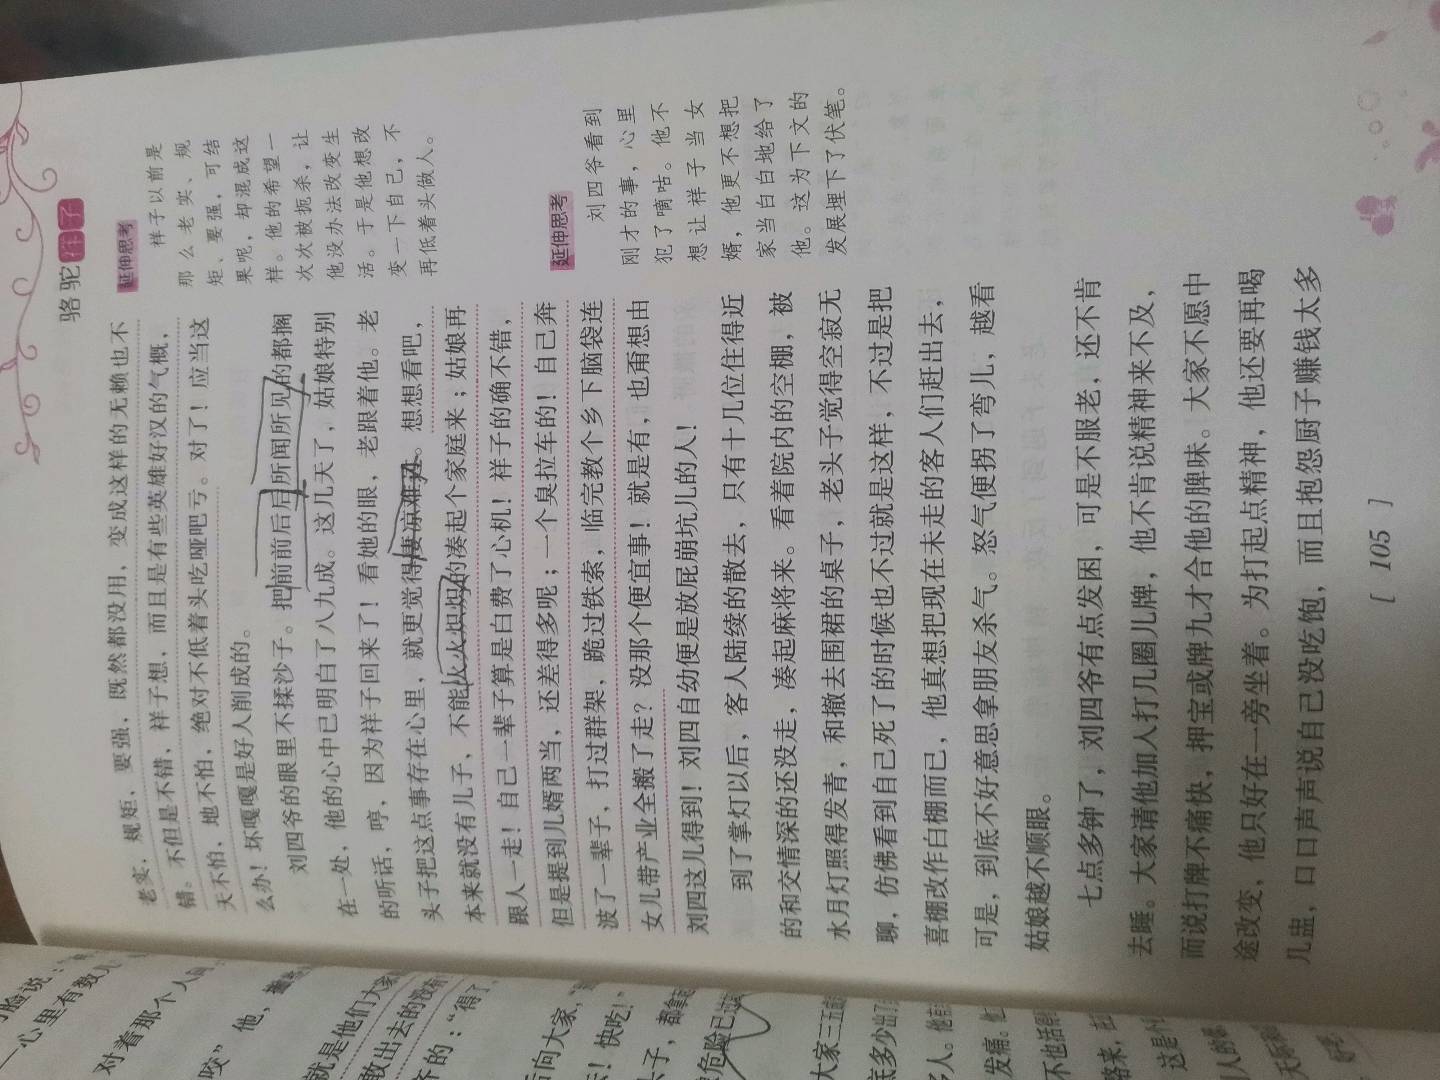 骆驼祥子
老实、规矩、要强,既然都没用,变成这样的无赖也不
错。不但是不错,祥子想,而且是有些英雄好汉的气概,
天不怕,地不怕,绝对不低着头吃哑吧亏。对了!应当这
么办!坏嘎嘎是好人削成的。
刘四爷的眼里不揉沙子。把前前后后所闻所见的都搁
在一处,他的心中已明白了八九成。这几天了,姑娘特别
的听话,哼,因为祥子回来了!看她的眼,老跟着他。老
头子把这点事存在心里,就更觉得凄凉难过。想想看吧,
本来就没有儿子,不能火火炽炽的凑起个家庭来;姑娘再
跟人一走!自己一辈子算是白费了心机!祥子的确不错,
但是提到儿婿两当,还差得多呢;一个臭拉车的!自己奔
波了一辈子,打过群架,跪过铁索,临完教个乡下脑袋连
女儿带产业全搬了走?没那个便宜事!就是有,也甭想由
刘四这儿得到!刘四自幼便是放屁崩坑儿的人!
到了掌灯以后,客人陆续的散去,只有十几位住得近
的和交情深的还没走,凑起麻将来。看着院内的空棚,被
水月灯照得发青,和撤去围裙的桌子,老头子觉得空寂无
聊,仿佛看到自己死了的时候也不过就是这样,不过是把
喜棚改作白棚而已,他真想把现在未走的客人们赶出去,
可是,到底不好意思拿朋友杀气。怒气便拐了弯儿,越看
姑娘越不顺眼。
七点多钟了,刘四爷有点发困,可是不服老,还不肯
去睡。大家请他加入打几圈儿牌,他不肯说精神来不及,
而说打牌不痛快,押宝或牌九才合他的脾味。大家不愿中
途改变,他只好在一旁坐着。为打起点精神,他还要再喝
几盅,口口声声说自己没吃饱,而且抱怨厨子赚钱太多
延伸思考
祥子以前是
那么老实、规
矩、要强,可结
果呢,却混成这
样。他的希望一
次次被扼杀,让
他没办法改变生
活。于是他想改
变一下自己,不
再低着头做人。
延伸思考
刘四爷看到
刚才的事,心里
犯了嘀咕。他不
想让祥子当女
婿,他更不想把
家当白白地给了
他。这为下文的
发展埋下了伏笔。
[ 105 ]
脸说:
心里有数
对着那个人
咬”他,
就是他们大家
敢出去的没有
齐的:“得了,
向大家,
去!快吃!
子,都拿
危险已过
大家三五成
底多少出了
多人。他
发痛。
不也活
路来,
这是